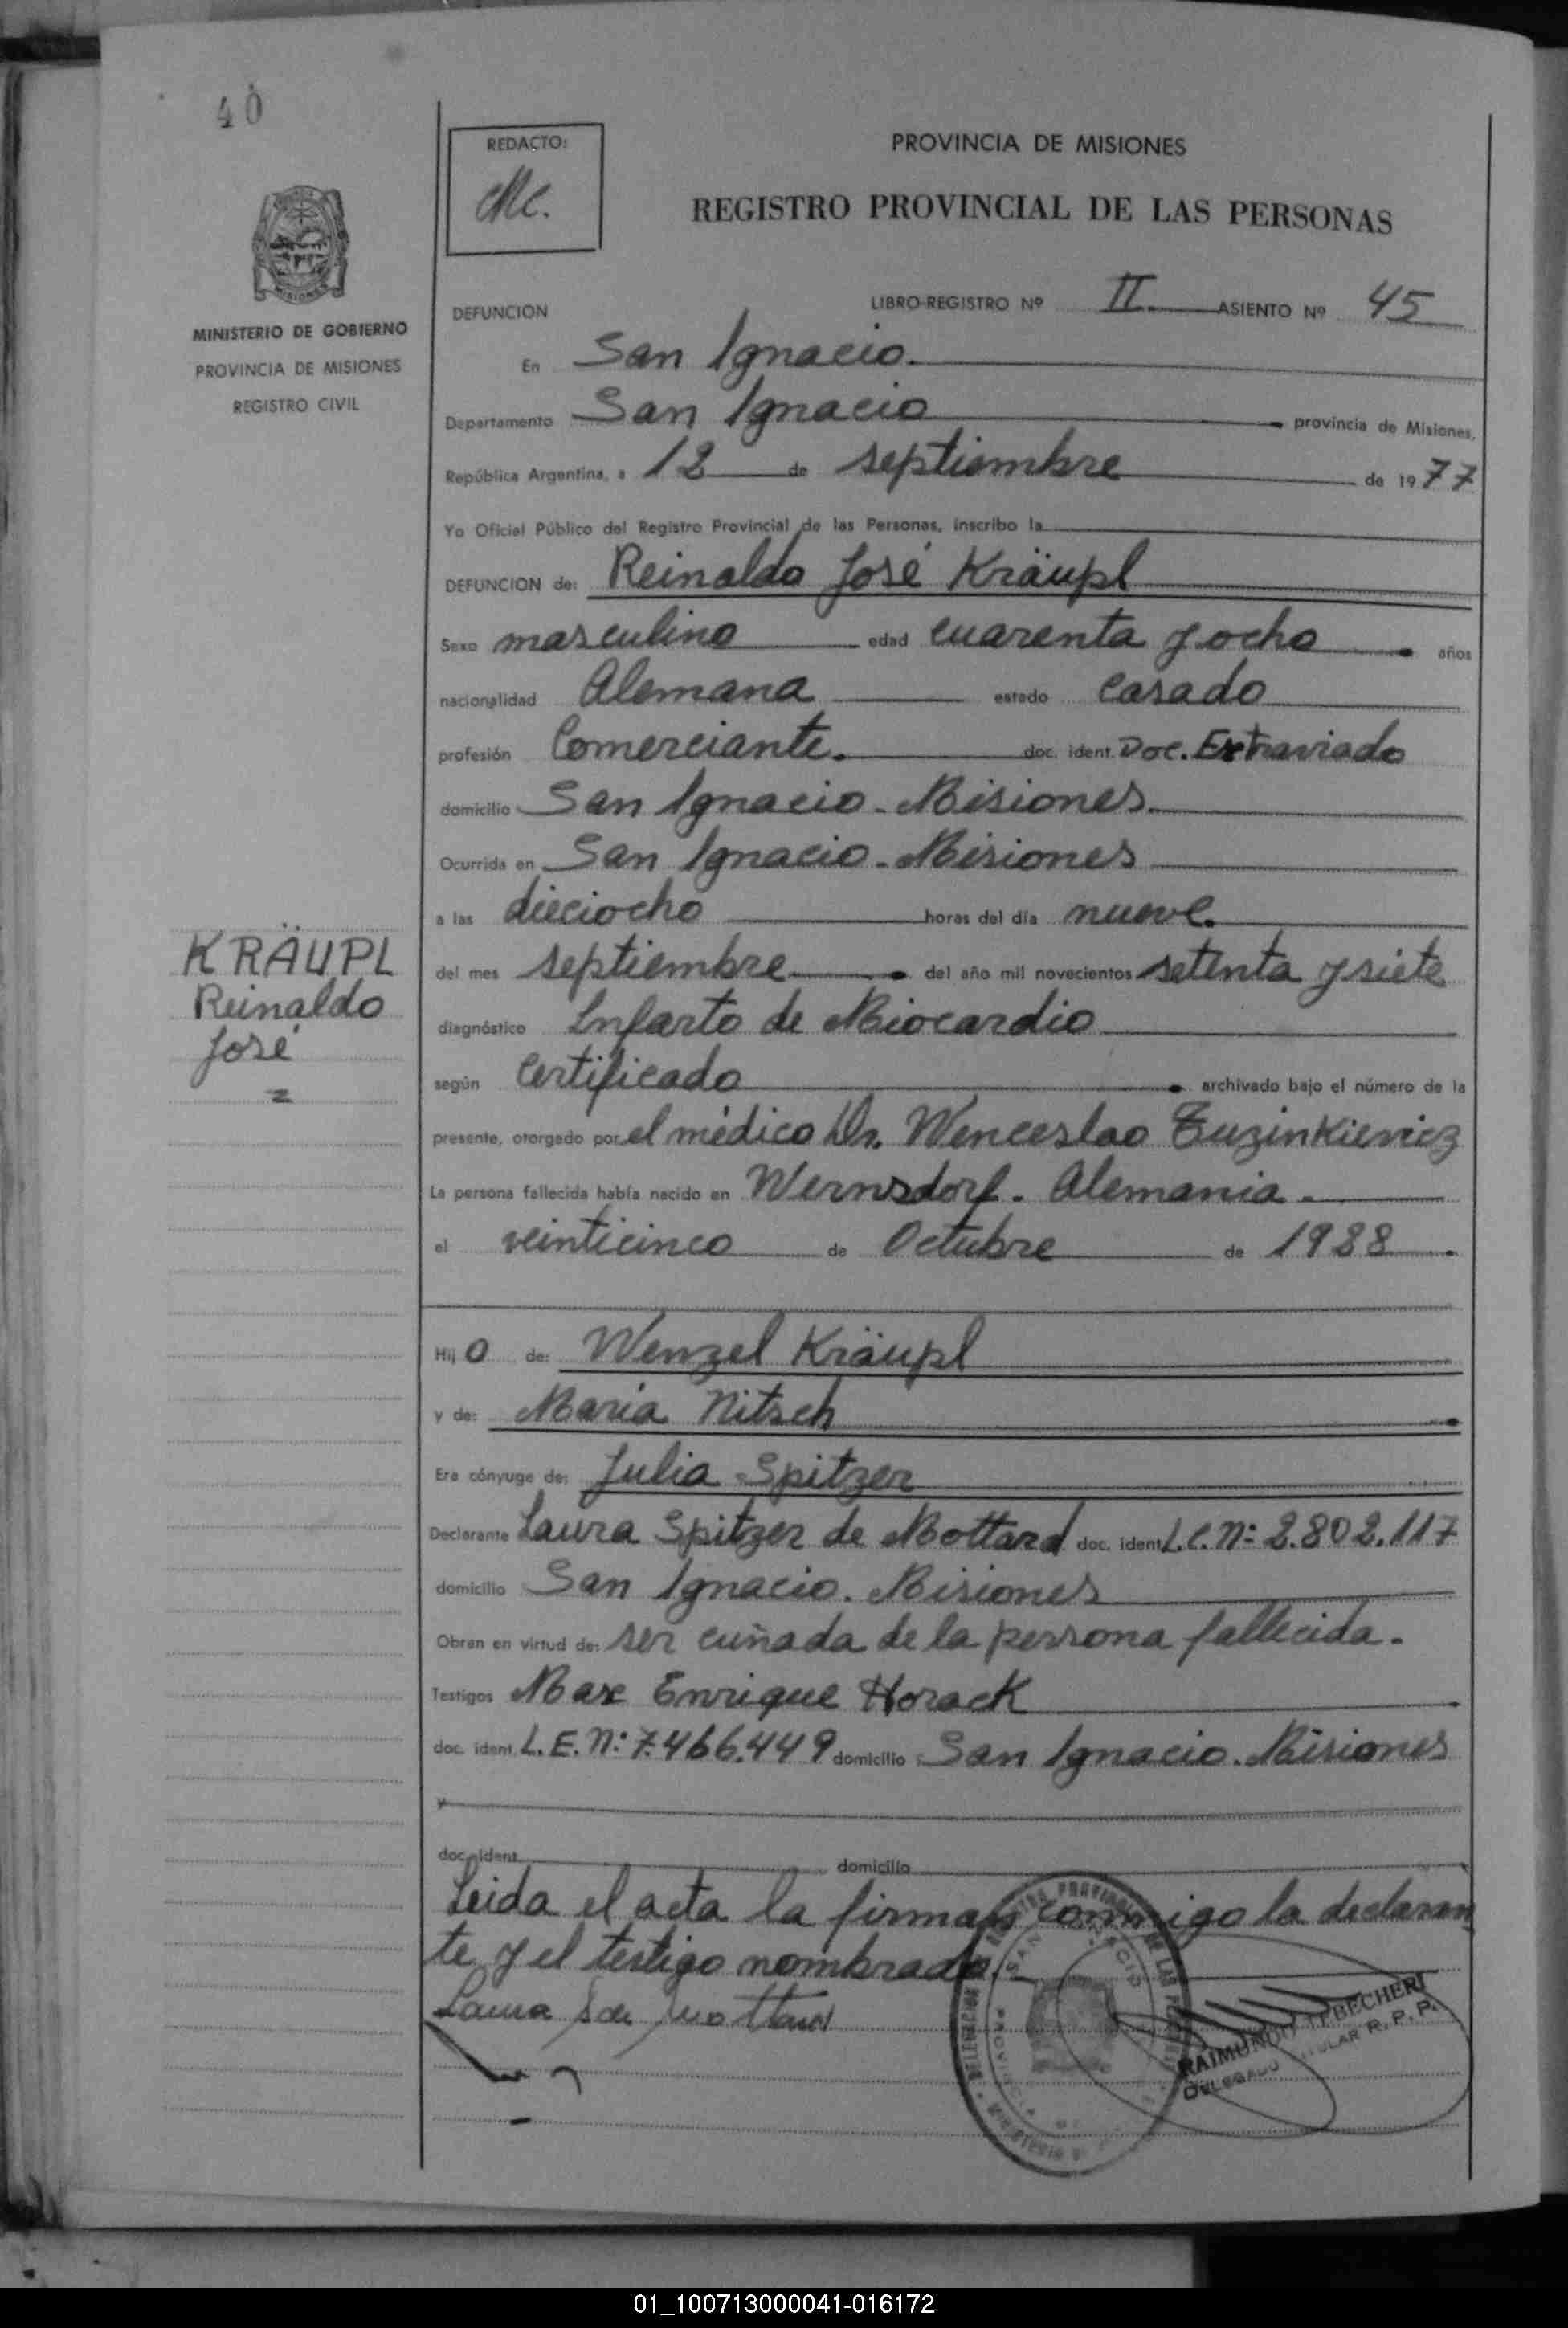 40
REDACTO:
Mc.
PROVINCIA DE MISIONES
REGISTRO PROVINCIAL DE LAS PERSONAS
MISIONES
MINISTERIO DE GOBIERNO
PROVINCIA DE MISIONES
REGISTRO CIVIL
DEFUNCION LIBRO-REGISTRO Nº II ASIENTO Nº 45
En San Ignacio.
Departamento San Ignacio provincia de Misiones,
República Argentina, a 12 de septiembre de 1977
Yo Oficial Público del Registro Provincial de las Personas, inscribo la
DEFUNCION de: Reinaldo José Kräupl
Sexo masculino edad cuarenta y ocho años
nacionalidad Alemana estado Casado
profesión Comerciante. doc. ident. Doc. Extraviado
domicilio San Ignacio - Misiones
Ocurrida en San Ignacio - Misiones
a las dieciocho horas del día nueve.
KRÄUPL
Reinaldo
José
del mes septiembre del año mil novecientos setenta y siete
diagnóstico Infarto de Miocardio
según Certificado archivado bajo el número de la
presente, otorgado por el médico Dr. Wenceslao Tuzinkievicz
La persona fallecida había nacido en Wernsdorf - Alemania -
el veinticinco de Octubre de 1928.
Hijo de: Wenzel Kräupl
y de: María Nitsch
Era cónyuge de: Julia Spitzer
Declarante Laura Spitzer de Mottard doc. ident. L.C. Nº 2.802.117
domicilio San Ignacio. Misiones
Obran en virtud de: ser cuñada de la persona fallecida -
Testigos Max Enrique Horack
doc. ident. L.E. Nº: 7.466.449 domicilio San Ignacio. Misiones
y
doc. ident. domicilio
Leida el acta la firman conmigo la declaran
te y el testigo nombrado.
Laura S de Mottard
RAIMUNDO TEBECHERI
DELEGADO TITULAR R. P. P.
01_100713000041-016172